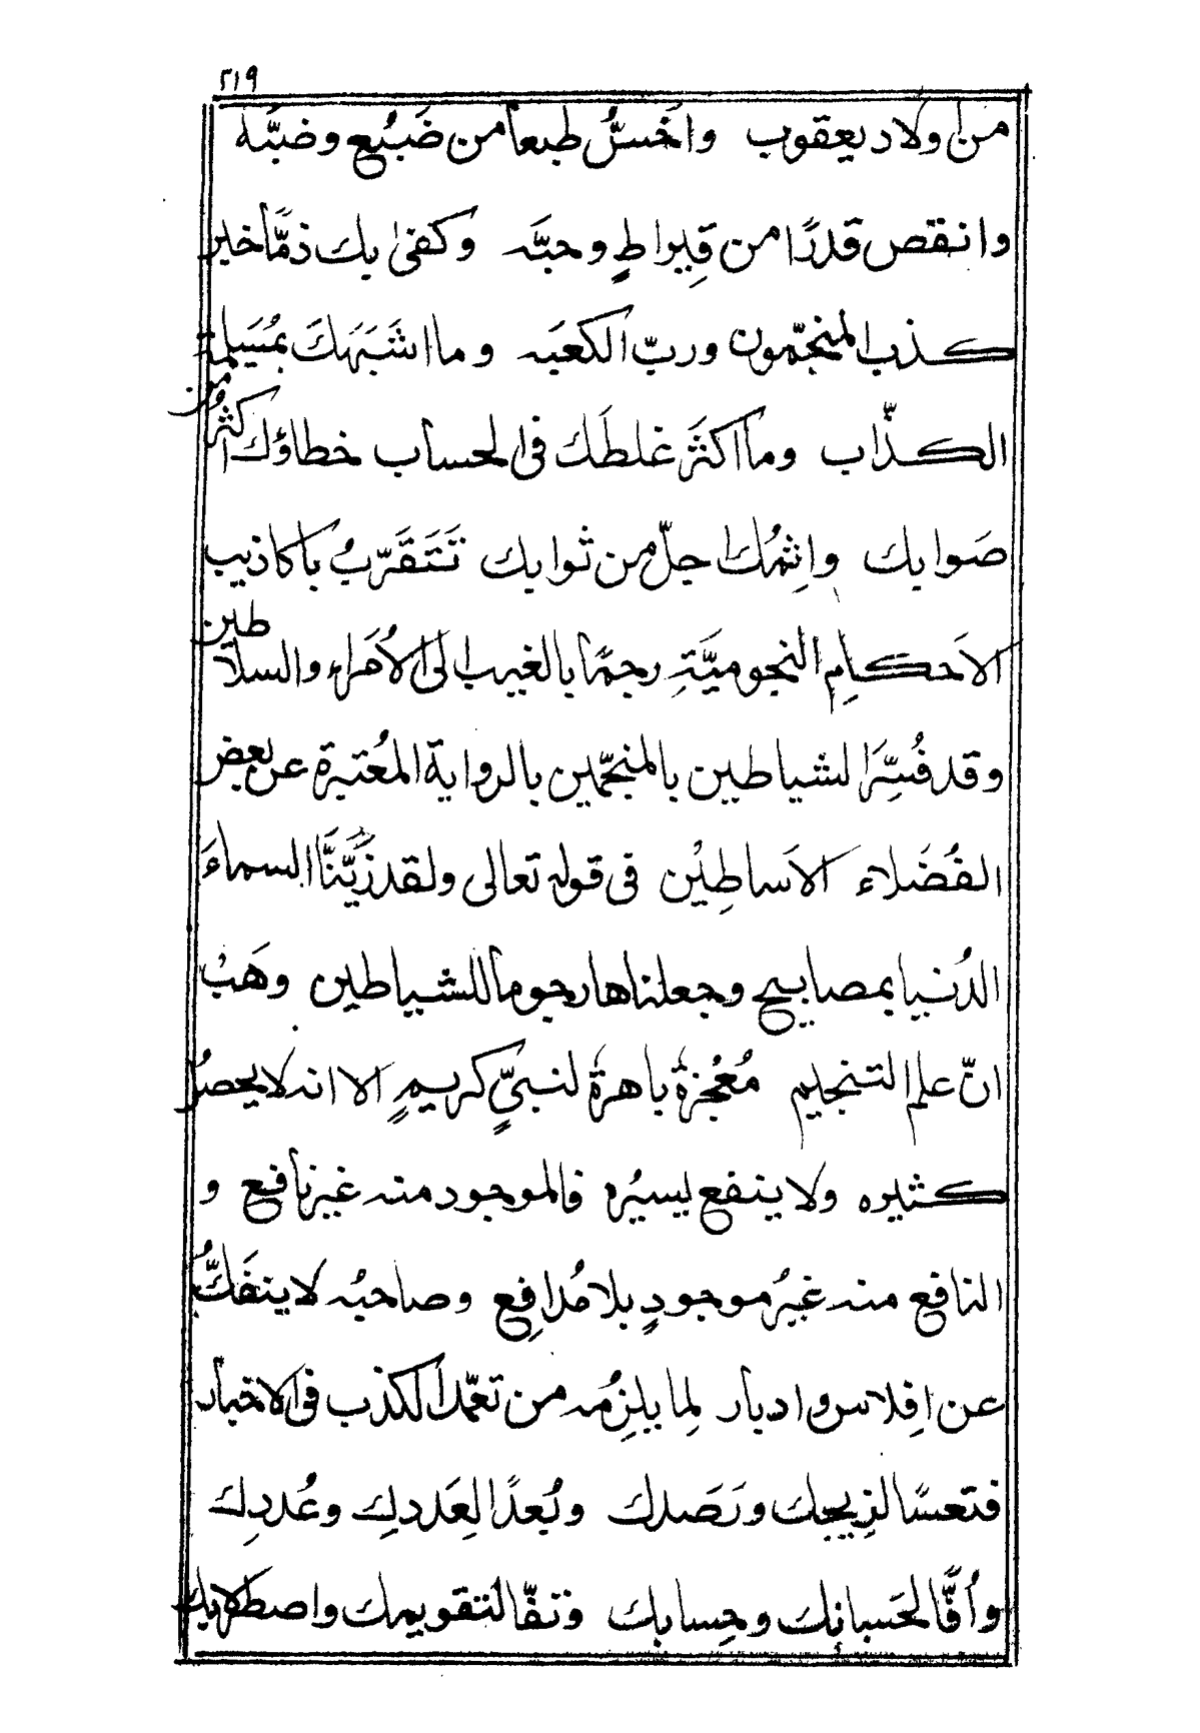 ٢١٩
من اولاد يعقوب واَخَسُّ طبعا من ضَبُع وضبَّه
وانقص قدرًا من قِيراطٍ وحبَّه وكفىٰ بك ذمًّا خبر
كذب المنجّمون وربّ الكعبَه وما اشَبَهَكَ بمُسَيلمة
الكذّاب وما اكثَرَ غلطَك فى الحساب خطاؤك اكثر من
صَوابك واِثمُك اجلّ من ثوابك تَتَقَرّبُ باكاذيب
الاَحكامِ النجوميَّةِ رجمًا بالغيب الى الاُمَراء والسلاطين
وقد فُسِّرَ الشياطين بالمنجّمين بالرواية المعُتبرة عن بعض
الفُضَلاء الاَساطِيْن فى قوله تعالى ولقد زَيَّنَّا السماءَ
الدُنيا بمصابيح وجعلناها رجوما للشياطين وهَبْ
انّ علم التنجيم مُعْجزةٌ باهرةٌ لنبىٍّ كريمٍ الا انه لا يحصرُ
كثيره ولا ينفع يسيُره فالموجود منه غير نافع و
النافع منه غيرُ موجودٍ بلا مُدافِع وصاحبُه لا ينفَكُّ
عن اِفلاس وادبار لِما يلزِمُه من تعمّد الكذب فى الاخبار
فتعسًا لزِيجك ورَصَدك وبُعدًا لِعَددك وعُددِك
واُفًّا لحَسبانِك وحِسابك وتفّا لتقويمك واصطرلابك